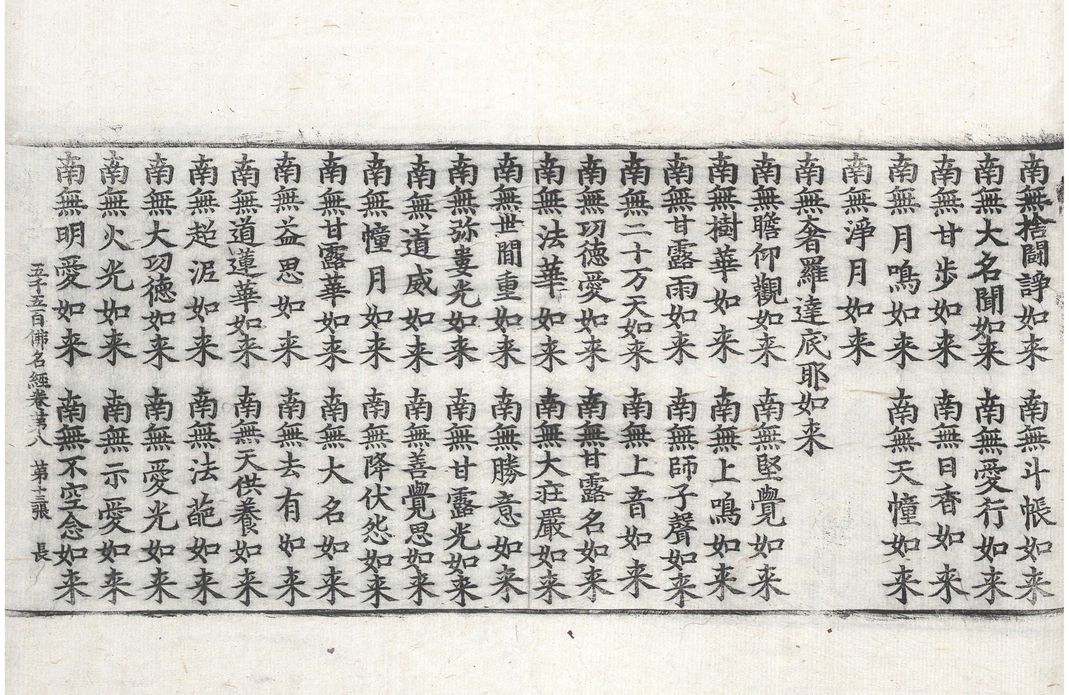 南無捨闘諍如来 南無斗帳如来
南無大名聞如来 南無愛行如来
南無甘步如来 南無日香如来
南無月鳴如来 南無天憧如来
南無淨月如来
南無奢羅達底耶如来
南無瞻仰觀如来 南無堅覺如来
南無樹華如来 南無上鳴如来
南無甘露雨如来 南無師子聲如来
南無二十万天如来 南無上音如来
南無功德愛如来 南無甘露名如来
南無法華如来 南無大莊嚴如来
南無世間重如来 南無勝意如来
南無弥婁光如来 南無甘露光如来
南無道威如来 南無善覺思如来
南無憧月如来 南無降伏怨如来
南無甘露華如来 南無大名如来
南無益思如来 南無去有如来
南無道蓮華如来 南無天供養如来
南無超泥如来 南無法葩如来
南無大功德如来 南無愛光如来
南無火光如来 南無示愛如来
南無明愛如来 南無不空念如来
五千五百佛名經卷第八 第十三張 長